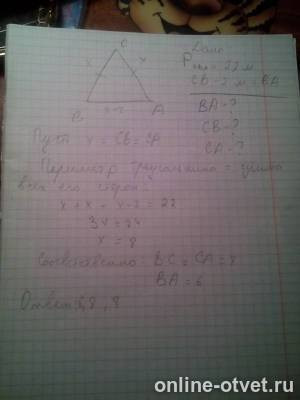 C
x x
B x-2 A
Дано
P = 22 м
CB-2 м = BA
BA-?
CB-?
CA-?
Пусть x = CB = CA
Периметр треугольника = сумма
всех его сторон
x + x + x-2 = 22
3x = 24
x = 8
Соответственно: BC = CA = 8
BA = 6
Ответ: 6, 8, 8
online-otvet.ru